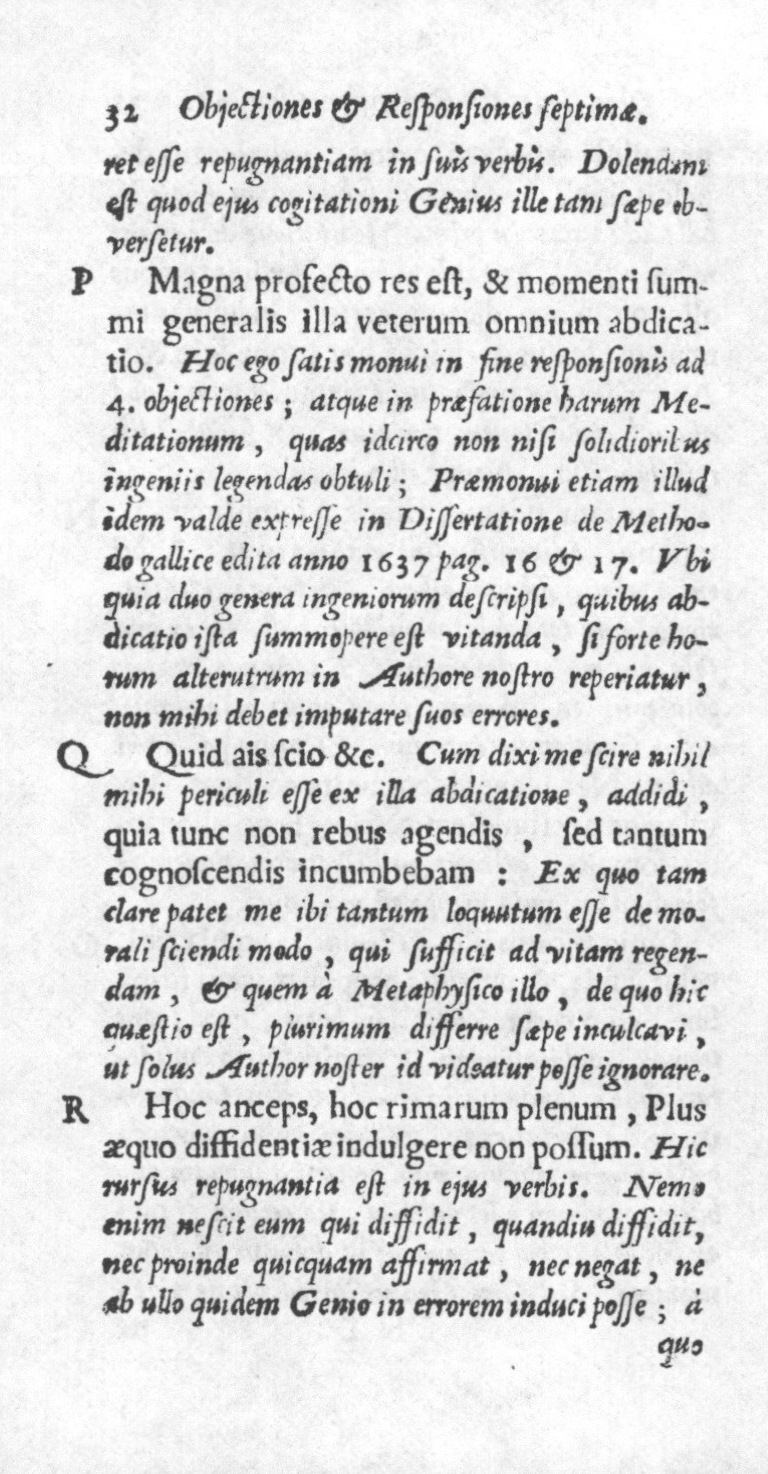 32 Objectiones & Responsiones septimæ.
ret esse repugnantiam in suis verbis. Dolendum
est quod ejus cogitationi Genius ille tam sæpe ob-
versetur.
P Magna profecto res est, & momenti sum-
mi generalis illa veterum omnium abdica-
tio. Hoc ego satis monui in fine responsionis ad
4. objectiones ; atque in præfatione harum Me-
ditationum , quas idcirco non nisi solidioribus
ingeniis legendas obtuli ; Præmonui etiam illud
idem valde expresse in Dissertatione de Metho-
do gallice edita anno 1637 pag. 16 & 17. Vbi
quia duo genera ingeniorum descripsi , quibus ab-
dicatio ista summopere est vitanda , si forte ho-
rum alterutrum in Authore nostro reperiatur ,
non mihi debet imputare suos errores.
Q Quid ais scio &c. Cum dixi me scire nihil
mihi periculi esse ex illa abdicatione , addidi ,
quia tunc non rebus agendis , sed tantum
cognoscendis incumbebam : Ex quo tam
clare patet me ibi tantum loquutum esse de mo-
rali sciendi modo , qui sufficit ad vitam regen-
dam , & quem à Metaphysico illo , de quo hic
quæstio est , plurimum differre sæpe inculcavi ,
ut solus Author noster id videatur posse ignorare.
R Hoc anceps, hoc rimarum plenum , Plus
æquo diffidentiæ indulgere non possum. Hic
rursus repugnantia est in ejus verbis. Nemo
enim nescit eum qui diffidit , quandiu diffidit,
nec proinde quicquam affirmat , nec negat , ne
ab ullo quidem Genio in errorem induci posse ; à
quo